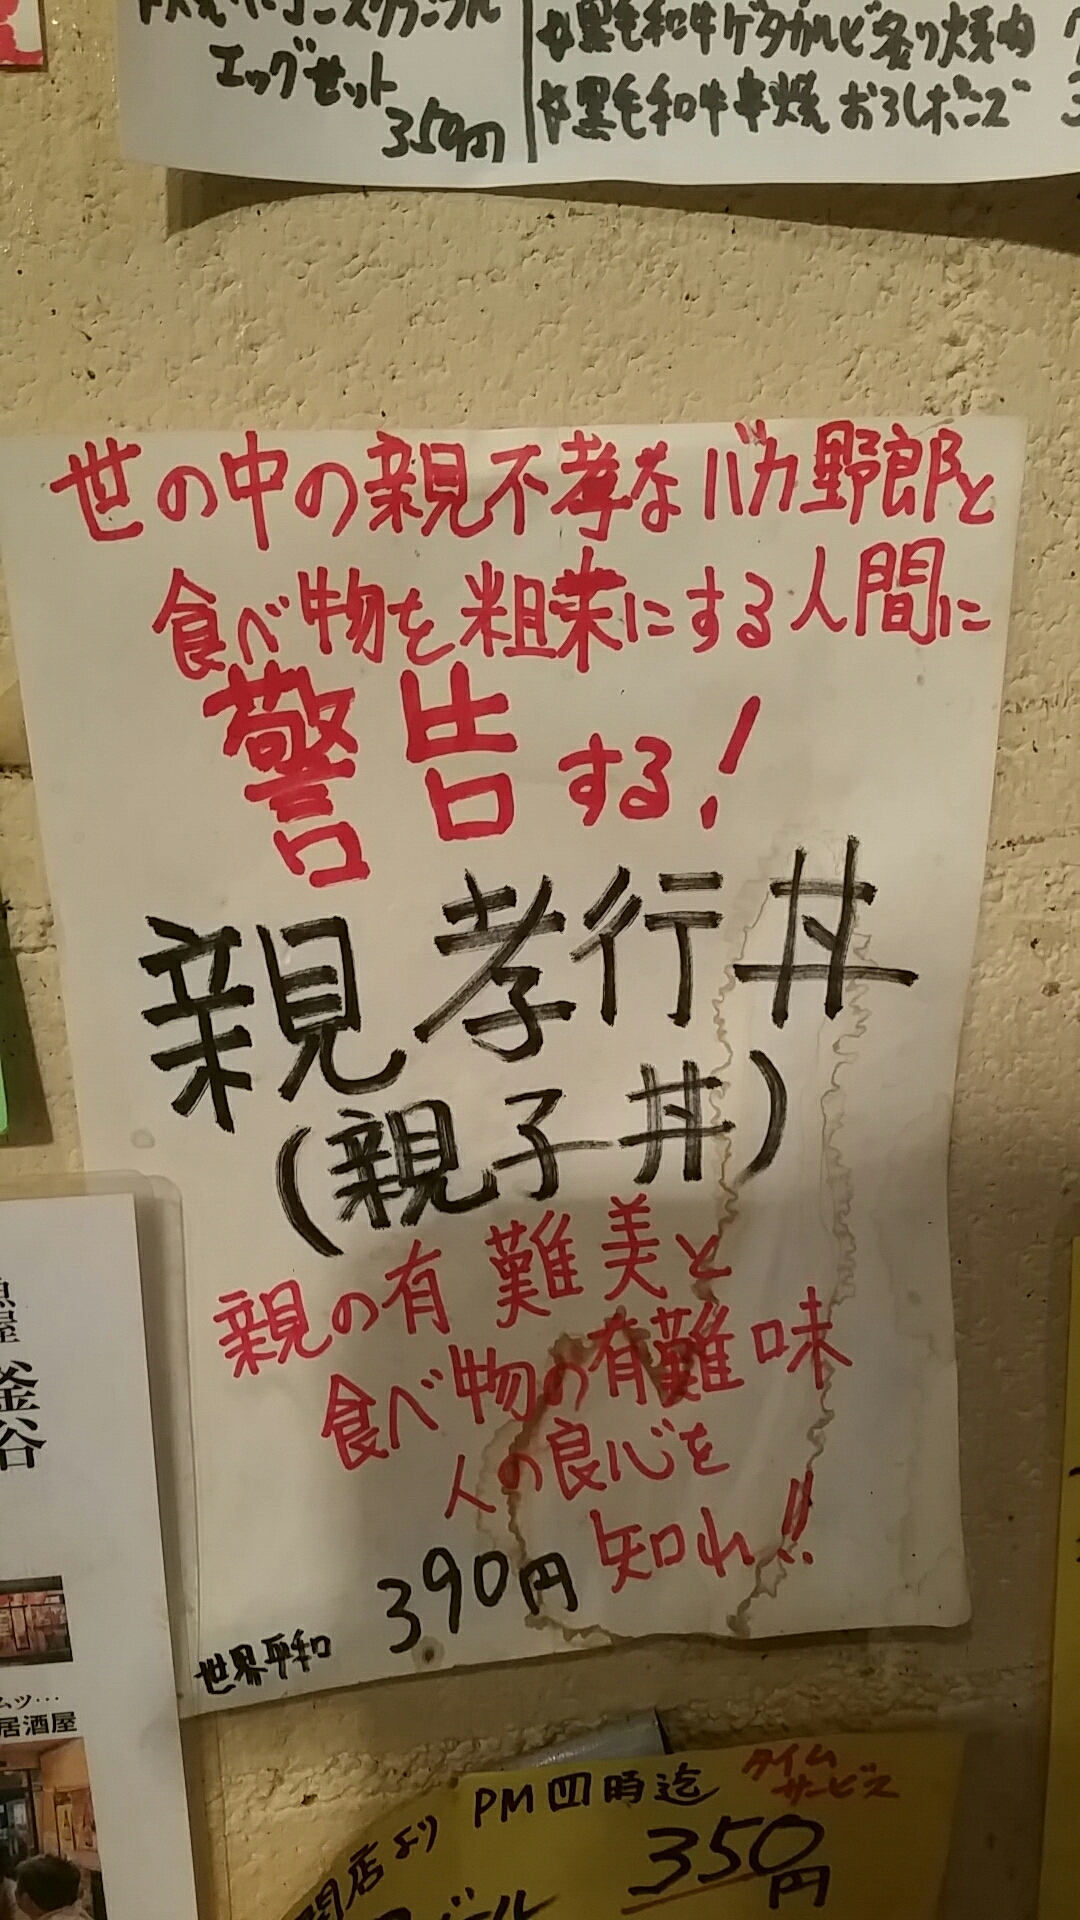 エッグセット
350円
黒毛和牛ゲタカルビ炙り焼肉
黒毛和牛串焼 おろしポン酢
世の中の親不孝なバカ野郎と
食べ物を粗末にする人間に
警告する!
親孝行丼
(親子丼)
親の有難美と
食べ物の有難味
人の良心を
知れ!!
390円
世界平和
魚屋
釜谷
ムツ…
居酒屋
開店より PM四時迄
タイム
サービス
350円